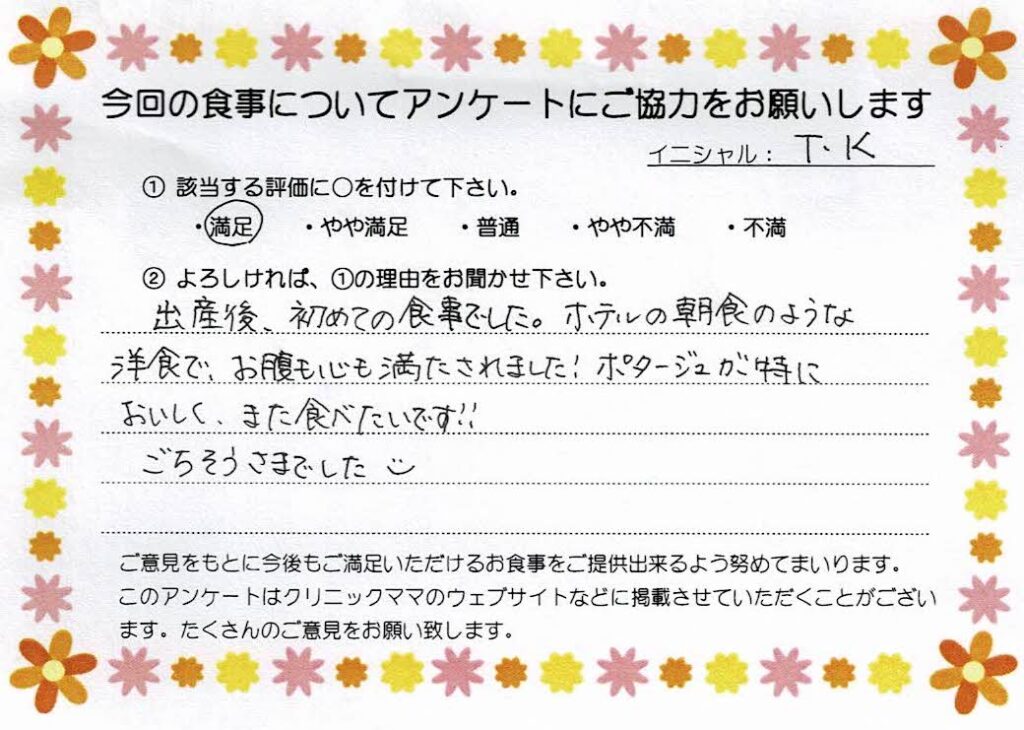 今回の食事についてアンケートにご協力をお願いします
イニシャル： T.K
① 該当する評価に○を付けて下さい。
・満足 ・やや満足 ・普通 ・やや不満 ・不満
② よろしければ、①の理由をお聞かせ下さい。
出産後、初めての食事でした。ホテルの朝食のような
洋食で、お腹も心も満たされました！ポタージュが特に
おいしく、また食べたいです!!
ごちそうさまでした
ご意見をもとに今後もご満足いただけるお食事をご提供出来るよう努めてまいります。
このアンケートはクリニックママのウェブサイトなどに掲載させていただくことがござい
ます。たくさんのご意見をお願い致します。